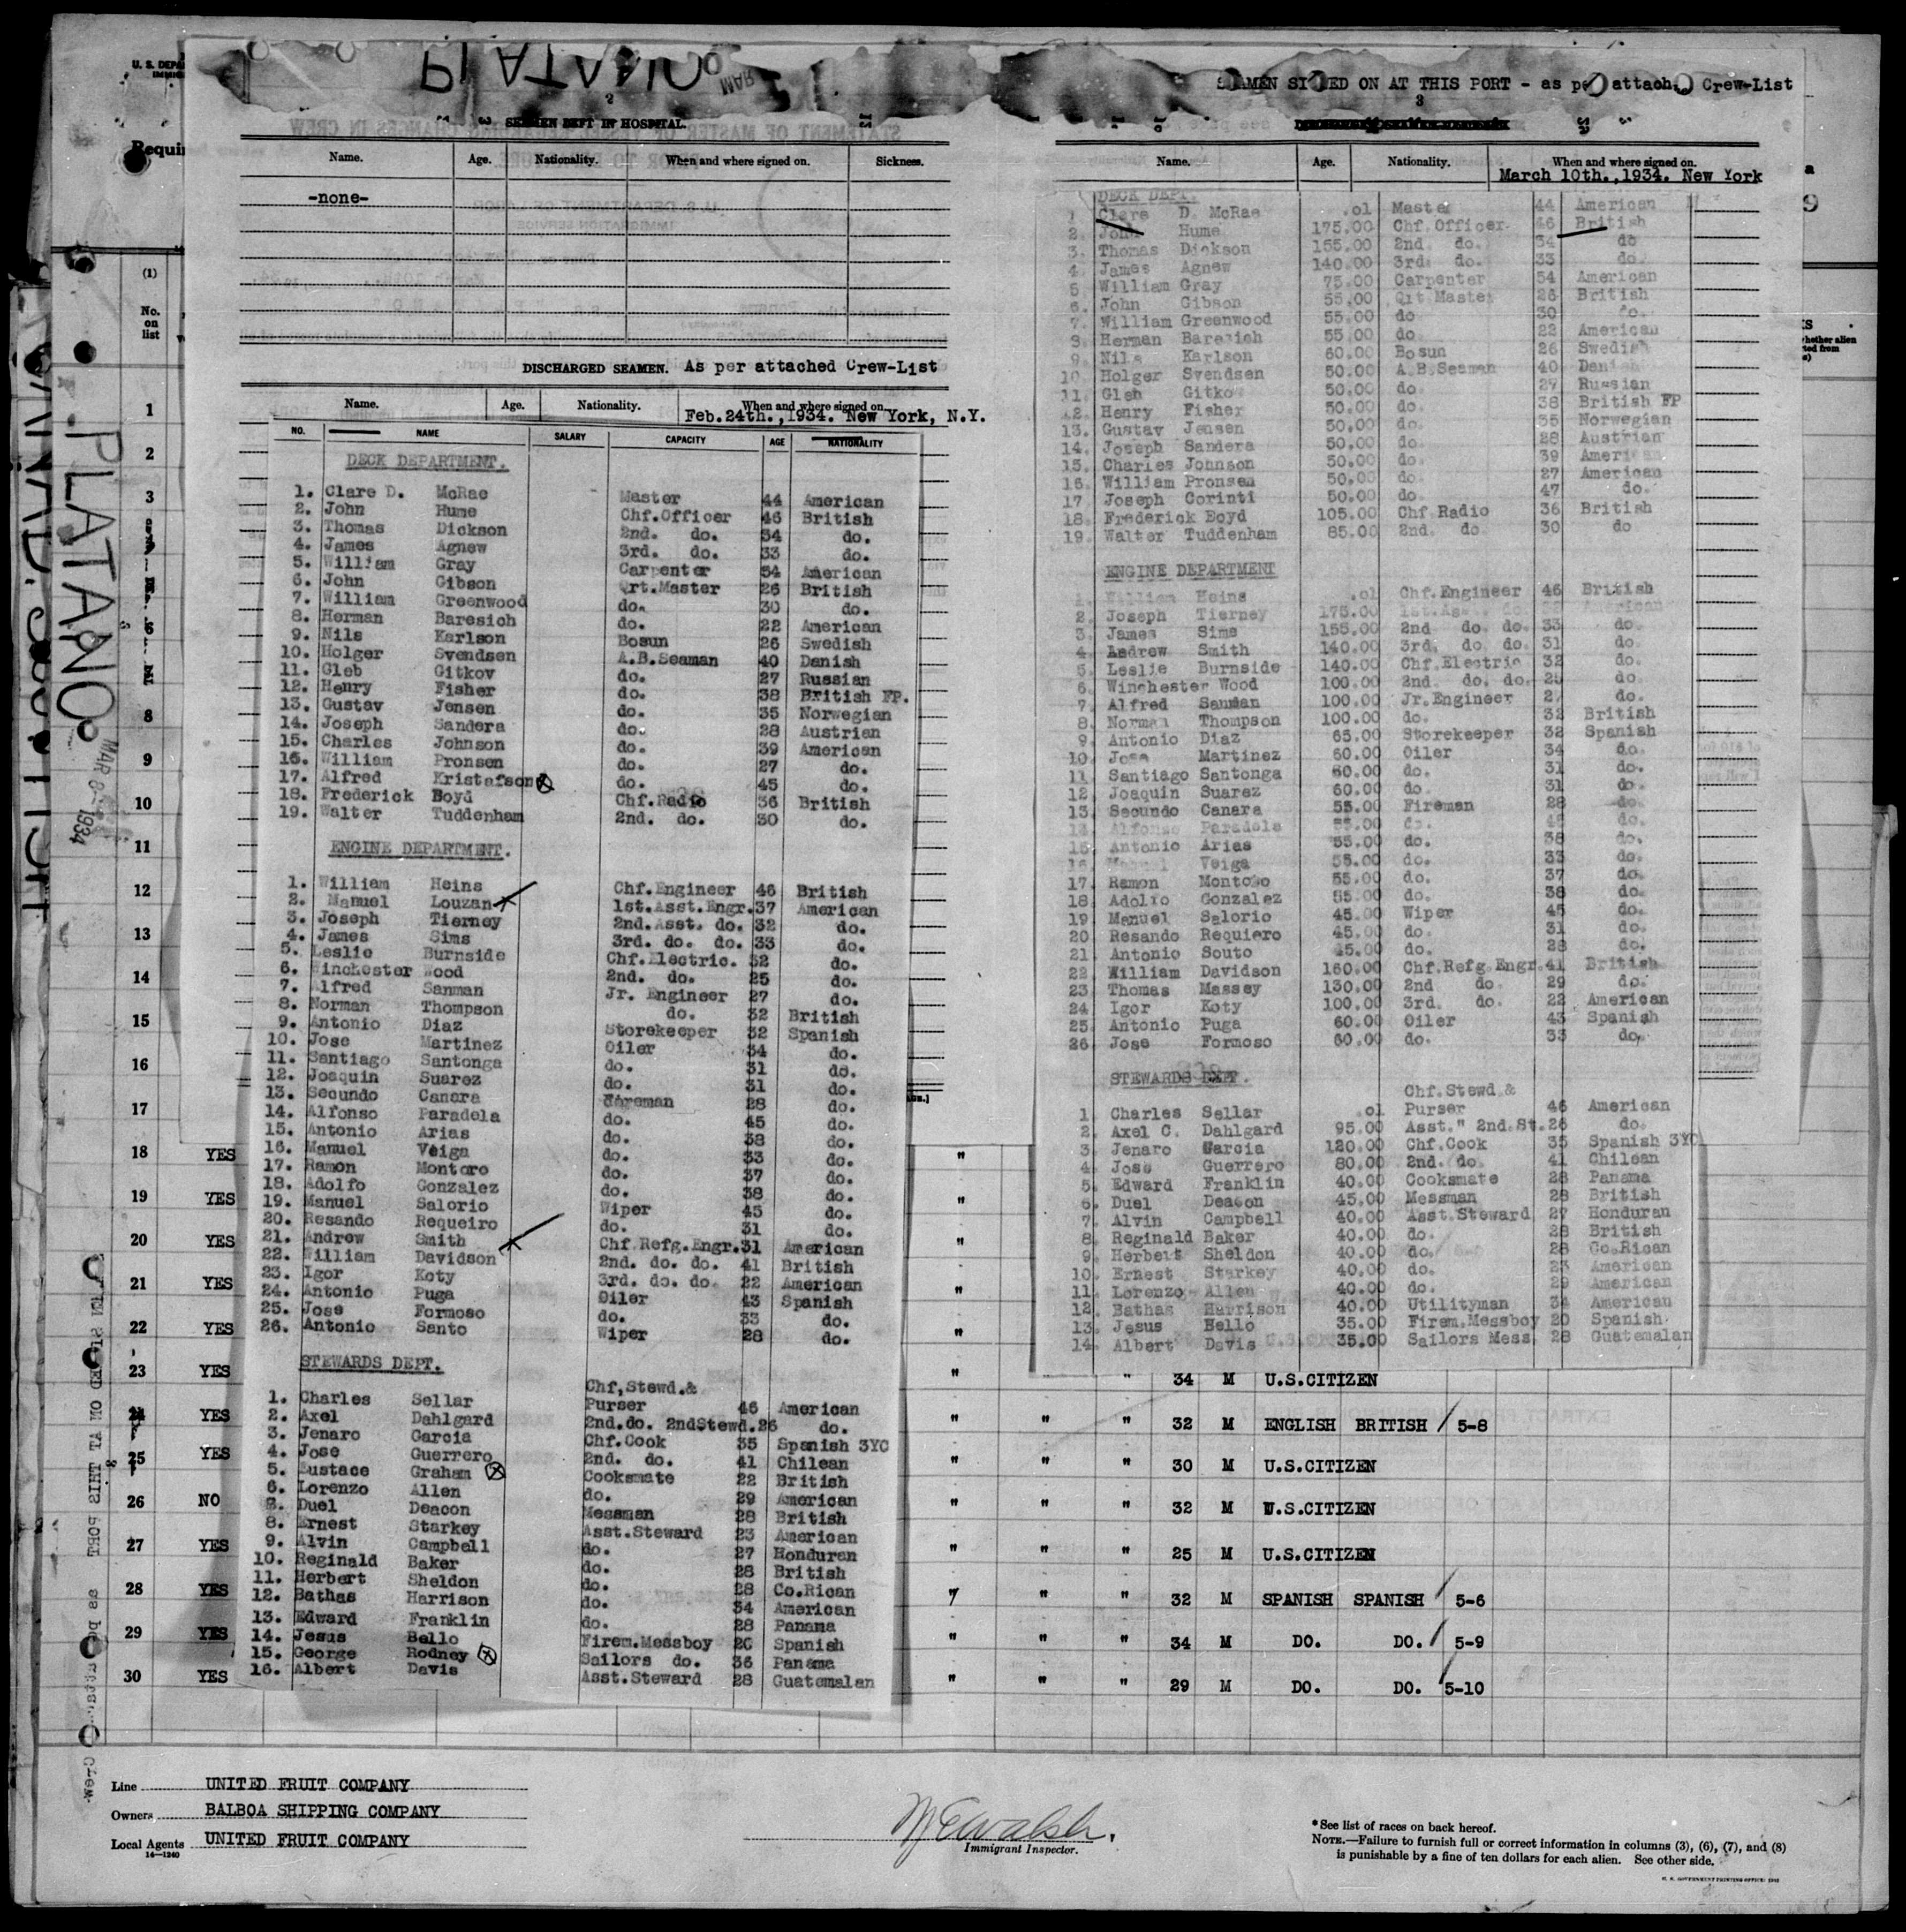 PLATANO
MAR
SEAMEN DEPT IN HOSPITAL.
Name. Age. Nationality. When and where signed on. Sickness.
-none-
DISCHARGED SEAMEN. As per attached Crew-List
Name. Age. Nationality. When and where signed on.
Feb.24th.,1934. New York, N.Y.
NO. NAME SALARY CAPACITY AGE NATIONALITY
DECK DEPARTMENT.
1. Clare D. McRae Master 44 American
2. John Hume Chf.Officer 46 British
3. Thomas Dickson 2nd. do. 34 do.
4. James Agnew 3rd. do. 33 do.
5. William Gray Carpenter 54 American
6. John Gibson Qrt.Master 26 British
7. William Greenwood do. 30 do.
8. Herman Baresich do. 22 American
9. Nils Karlson Bosun 26 Swedish
10. Holger Svendsen A.B.Seaman 40 Danish
11. Gleb Gitkov do. 27 Russian
12. Henry Fisher do. 38 British FP.
13. Gustav Jensen do. 35 Norwegian
14. Joseph Sandera do. 28 Austrian
15. Charles Johnson do. 39 American
16. William Pronsen do. 27 do.
17. Alfred Kristafson do. 45 do.
18. Frederick Boyd Chf.Radio 36 British
19. Walter Tuddenham 2nd. do. 30 do.
ENGINE DEPARTMENT.
1. William Heins Chf.Engineer 46 British
2. Manuel Louzan 1st.Asst.Engr. 37 American
3. Joseph Tierney 2nd.Asst. do. 32 do.
4. James Sims 3rd. do. do. 33 do.
5. Leslie Burnside Chf.Electric. 32 do.
6. Winchester Wood 2nd. do. 25 do.
7. Alfred Sanman Jr. Engineer 27 do.
8. Norman Thompson do. 32 British
9. Antonio Diaz Storekeeper 32 Spanish
10. Jose Martinez Oiler 34 do.
11. Santiago Santonga do. 31 do.
12. Joaquin Suarez do. 31 do.
13. Secundo Canara Fireman 28 do.
14. Alfonso Paradela do. 45 do.
15. Antonio Arias do. 38 do.
16. Manuel Veiga do. 33 do.
17. Ramon Montoro do. 37 do.
18. Adolfo Gonzalez do. 38 do.
19. Manuel Salorio Wiper 45 do.
20. Resando Requeiro do. 31 do.
21. Andrew Smith Chf.Refg.Engr. 31 American
22. William Davidson 2nd. do. do. 41 British
23. Igor Koty 3rd. do. do. 22 American
24. Antonio Puga Oiler 43 Spanish
25. Jose Formoso do. 33 do.
26. Antonio Santo Wiper 28 do.
STEWARDS DEPT.
Chf,Stewd.&
1. Charles Sellar Purser 46 American
2. Axel Dahlgard 2nd.do. 2ndStewd.26 do.
3. Jenaro Garcia Chf.Cook 35 Spanish 3YC
4. Jose Guerrero 2nd. do. 41 Chilean
5. Eustace Graham Cooksmate 22 British
6. Lorenzo Allen do. 29 American
8. Duel Deacon Messman 28 British
8. Ernest Starkey Asst.Steward 23 American
9. Alvin Campbell do. 27 Honduran
10. Reginald Baker do. 28 British
11. Herbert Sheldon do. 28 Co.Rican
12. Bathas Harrison do. 34 American
13. Edward Franklin do. 28 Panama
14. Jesus Bello Firem.Messboy 20 Spanish
15. George Rodney Sailors do. 36 Panama
16. Albert Davis Asst.Steward 28 Guatemalan
SEAMEN SIGNED ON AT THIS PORT - as per attach. Crew-List
3
Name. Age. Nationality. When and where signed on.
March 10th.,1934. New York
DECK DEPT.
1 Clare D. McRae .01 Master 44 American
2. John Hume 175.00 Chf.Officer 46 British
3. Thomas Dickson 155.00 2nd. do. 34 do
4. James Agnew 140.00 3rd. do. 33 do.
5 William Gray 75.00 Carpenter 54 American
6. John Gibson 55.00 Qrt Master 26 British
7. William Greenwood 55.00 do 30 do.
8. Herman Baresich 55.00 do. 22 American
9. Nils Karlson 60.00 Bosun 26 Swedish
10. Holger Svendsen 50.00 A.B.Seaman 40 Danish
11. Gleb Gitkov 50.00 do. 27 Russian
12. Henry Fisher 50.00 do. 38 British FP
13. Gustav Jensen 50.00 do. 35 Norwegian
14. Joseph Sandera 50.00 do. 28 Austrian
15. Charles Johnson 50.00 do. 39 American
16. William Pronsen 50.00 do. 27 American
17. Joseph Corinti 50.00 do. 47 do.
18. Frederick Boyd 105.00 Chf.Radio 36 British
19. Walter Tuddenham 85.00 2nd. do 30 do
ENGINE DEPARTMENT
1. William Heins .01 Chf.Engineer 46 British
2. Joseph Tierney 175.00 1st.Ass. do. American
3. James Sims 155.00 2nd do. do. 33 do.
4. Andrew Smith 140.00 3rd. do. do. 31 do.
5. Leslie Burnside 140.00 Chf.Electric 32 do.
6. Winchester Wood 100.00 2nd. do. do. 25 do.
7. Alfred Sanman 100.00 Jr.Engineer 27 do.
8. Norman Thompson 100.00 do. 32 British
9. Antonio Diaz 65.00 Storekeeper 32 Spanish
10. Jose Martinez 60.00 Oiler 34 do.
11. Santiago Santonga 60.00 do. 31 do.
12 Joaquin Suarez 60.00 do. 31 do.
13. Secundo Canara 55.00 Fireman 28 do.
14. Alfonso Paradela 55.00 do. 45 do.
15 Antonio Arias 55.00 do. 38 do.
16. Manuel Veiga 55.00 do. 33 do.
17. Ramon Montoso 55.00 do. 37 do.
18. Adolfo Gonzalez 55.00 do. 38 do.
19 Manuel Salorio 45.00 Wiper 45 do.
20 Resando Requiero 45.00 do. 31 do.
21 Antonio Souto 45.00 do. 28 do.
22 William Davidson 160.00 Chf.Refg Engr. 41 British
23 Thomas Massey 130.00 2nd do. 29 do.
24 Igor Koty 100.00 3rd. do. 22 American
25. Antonio Puga 60.00 Oiler 43 Spanish
26 Jose Formoso 60.00 do. 33 do,
STEWARDS DEPT.
Chf.Stewd.&
1 Charles Sellar .01 Purser 46 American
2. Axel C. Dahlgard 95.00 Asst." 2nd.St. 26 do.
3. Jenaro Garcia 120.00 Chf.Cook 35 Spanish 3YC
4. Jose Guerrero 80.00 2nd. do. 41 Chilean
5. Edward Franklin 40.00 Cooksmate 28 Panama
6. Duel Deacon 45.00 Messman 28 British
7. Alvin Campbell 40.00 Asst.Steward 27 Honduran
8. Reginald Baker 40.00 do. 28 British
9. Herbert Sheldon 40.00 do. 28 Co.Rican
10. Ernest Starkey 40.00 do. 23 American
11. Lorenzo Allen 40.00 do. 29 American
12. Bathas Harrison 40.00 Utilityman 34 American
13. Jesus Bello 35.00 Firem.Messboy 20 Spanish
14. Albert Davis 35.00 Sailors Mess 28 Guatemalan
U. S. DEPA
Requir
(1)
No. on list
PLATANO
MAR 8-1934
1
2
3
8
9
10
11
12
13
14
15
16
17
18 YES "
19 YES "
20 YES "
21 YES "
22 YES "
23 YES " " 34 M U.S.CITIZEN
24 YES " " " 32 M ENGLISH BRITISH 5-8
25 YES " " " 30 M U.S.CITIZEN
26 NO " " " 32 M U.S.CITIZEN
27 YES " " " 25 M U.S.CITIZEN
28 YES " " " 32 M SPANISH SPANISH 5-6
29 YES " " " 34 M DO. DO. 5-9
30 YES " " " 29 M DO. DO. 5-10
Line UNITED FRUIT COMPANY
Owners BALBOA SHIPPING COMPANY
Local Agents UNITED FRUIT COMPANY
14-1240
Immigrant Inspector.
*See list of races on back hereof.
NOTE.—Failure to furnish full or correct information in columns (3), (6), (7), and (8)
is punishable by a fine of ten dollars for each alien. See other side.
U. S. GOVERNMENT PRINTING OFFICE